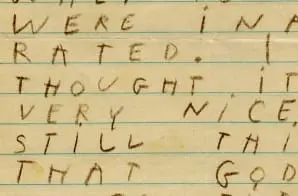 WERE INA
RATED. I
THOUGHT IT
VERY NICE.
STILL THI
THAT GOD